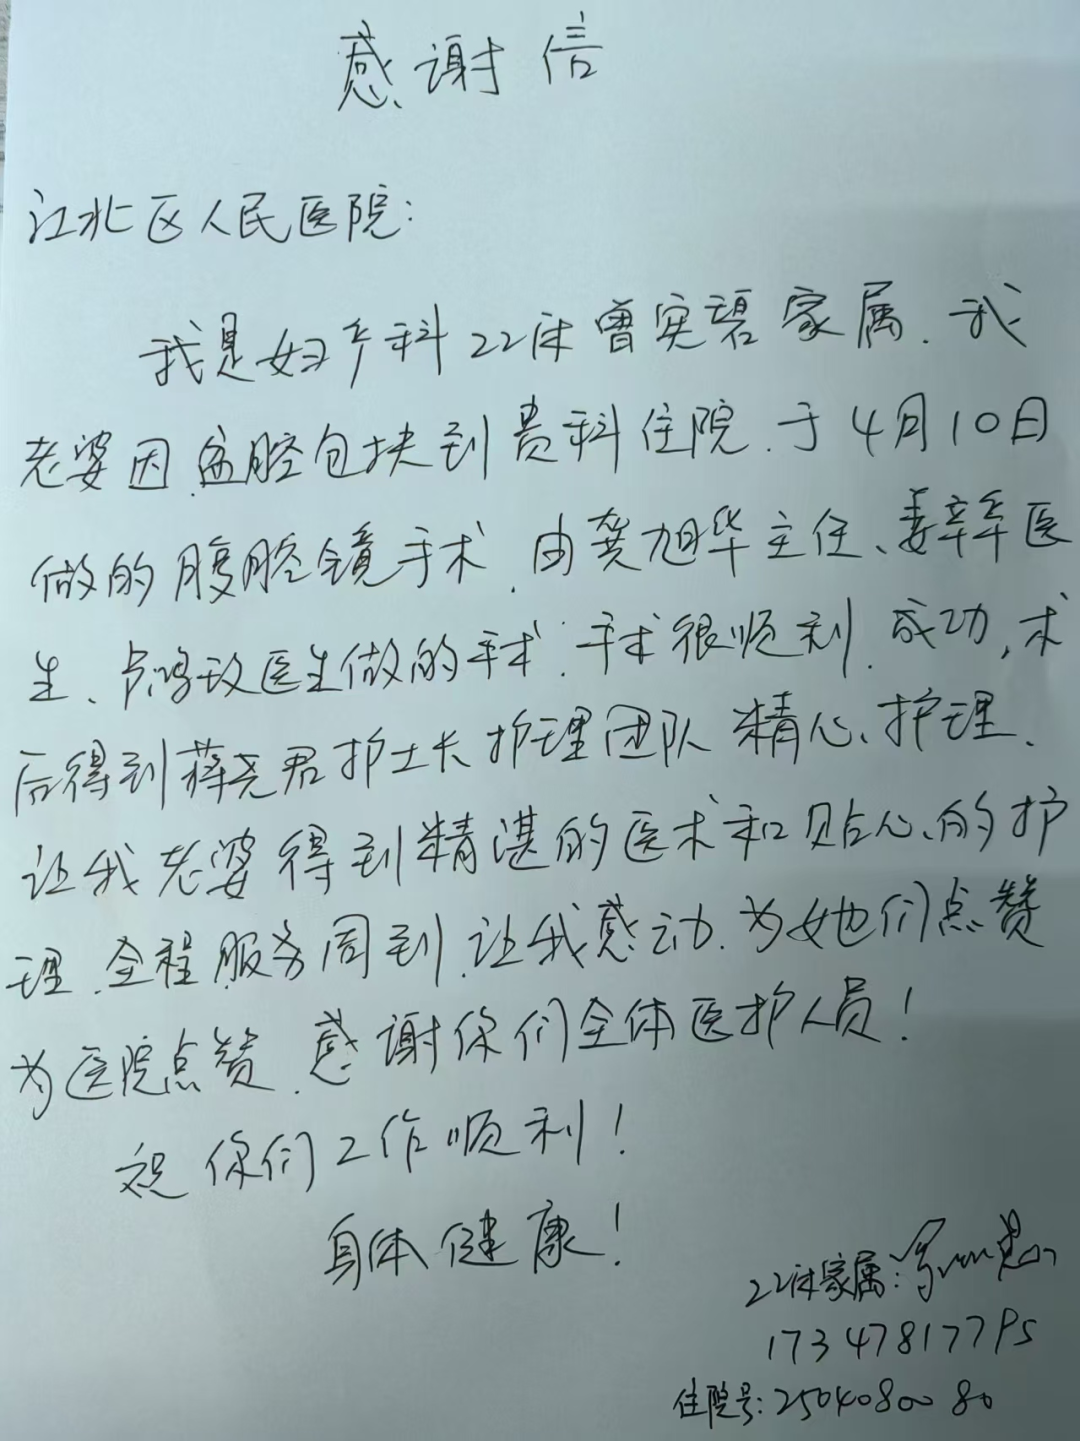 感谢信
江北区人民医院:
我是妇产科22床曾宪碧家属.我
老婆因盆腔包块到贵科住院.于4月10日
做的腹腔镜手术.由龚旭华主任、姜辛医
生、卢鸿玫医生做的手术.手术很顺利.成功,术
后得到蒋尧君护士长护理团队精心、护理.
让我老婆得到精湛的医术和贴心、的护
理.全程服务周到.让我感动.为她们点赞
为医院点赞.感谢你们全体医护人员!
祝你们工作顺利!
身体健康!
22床家属:
173478177
住院号:2504080080